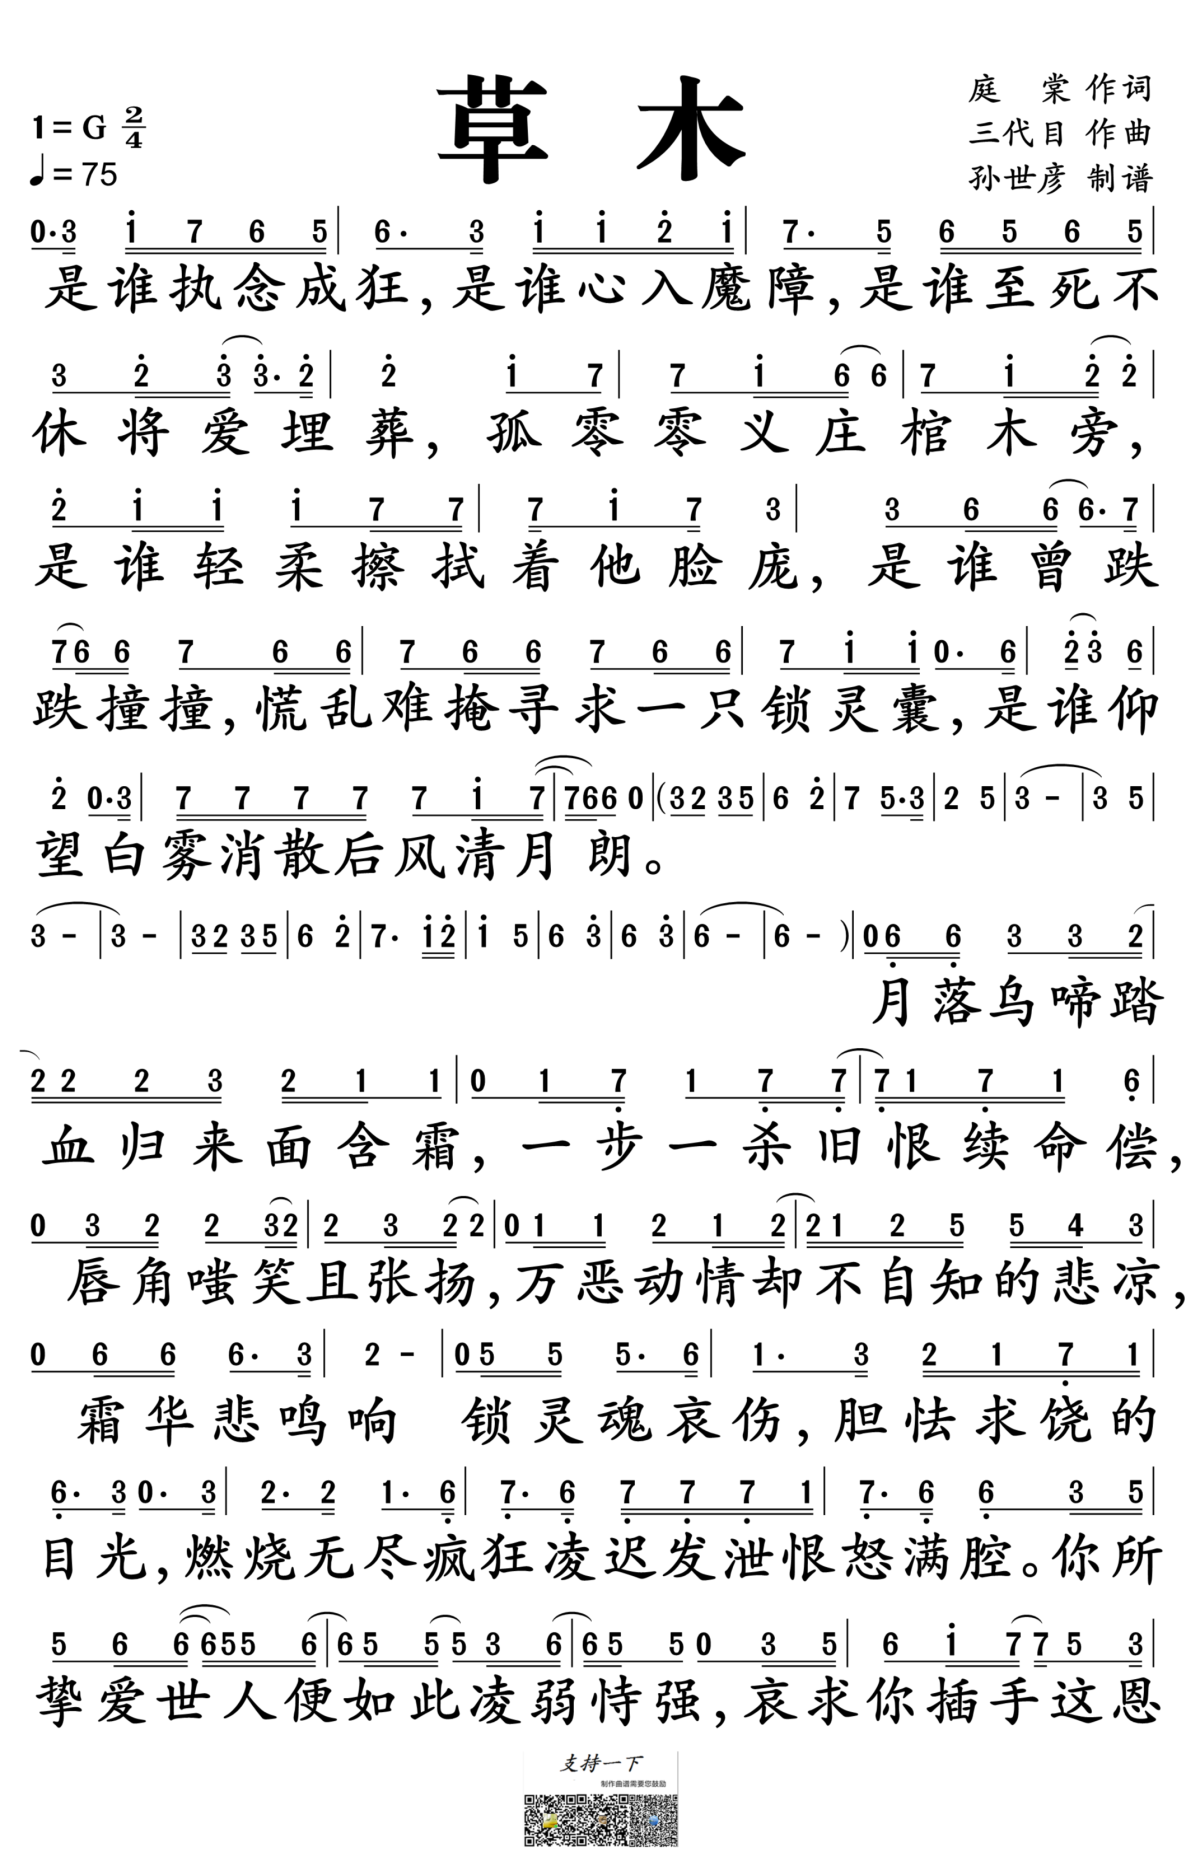 草 木
1=G 2/4
♩=75
庭 棠 作词
三代目 作曲
孙世彦 制谱
0·3 i 7 6 5 | 6· 3 i i 2̇ i | 7· 5 6 5 6 5 |
是谁执念成狂,是谁心入魔障,是谁至死不
3 2̇ 3̇ 3̇· 2̇ | 2̇ i 7 | 7 i 6 6 | 7 i 2̇ 2̇ |
休将爱埋葬,孤零零义庄棺木旁,
2̇ i i i 7 7 | 7 i 7 3 | 3 6 6 6· 7 |
是谁轻柔擦拭着他脸庞,是谁曾跌
7 6 6 7 6 6 | 7 6 6 7 6 6 | 7 i i 0· 6 | 2̇ 3̇ 6 |
跌撞撞,慌乱难掩寻求一只锁灵囊,是谁仰
2̇ 0·3 | 7 7 7 7 7 i 7 | 7 6 6 0 | (3 2 3 5 | 6 2̇ | 7 5·3 | 2 5 | 3 - | 3 5 |
望白雾消散后风清月朗。
3 - | 3 - | 3 2 3 5 | 6 2̇ | 7· i 2̇ | i 5 | 6 3̇ | 6 3̇ | 6 - | 6 - ) | 0 6̣ 6̣ 3 3 2 |
月落乌啼踏
2 2 2 3 2 1 1 | 0 1 7̣ 1 7̣ 7̣ | 7̣ 1 7̣ 1 6̣ |
血归来面含霜,一步一杀旧恨续命偿,
0 3 2 2 3 2 | 2 3 2 2 | 0 1 1 2 1 2 | 2 1 2 5 5 4 3 |
唇角嗤笑且张扬,万恶动情却不自知的悲凉,
0 6 6 6· 3 | 2 - | 0 5 5 5· 6 | 1· 3 2 1 7̣ 1 |
霜华悲鸣响 锁灵魂哀伤,胆怯求饶的
6̣· 3 0· 3 | 2· 2 1· 6̣ | 7̣· 6̣ 7̣ 7̣ 7̣ 1 | 7̣· 6̣ 6̣ 3 5 |
目光,燃烧无尽疯狂凌迟发泄恨怒满腔。你所
5 6 6 6 5 5 6 | 6 5 5 5 3 6 | 6 5 5 0 3 5 | 6 i 7 7 5 3 |
挚爱世人便如此凌弱恃强,哀求你插手这恩
支持一下
制作曲谱需要您鼓励